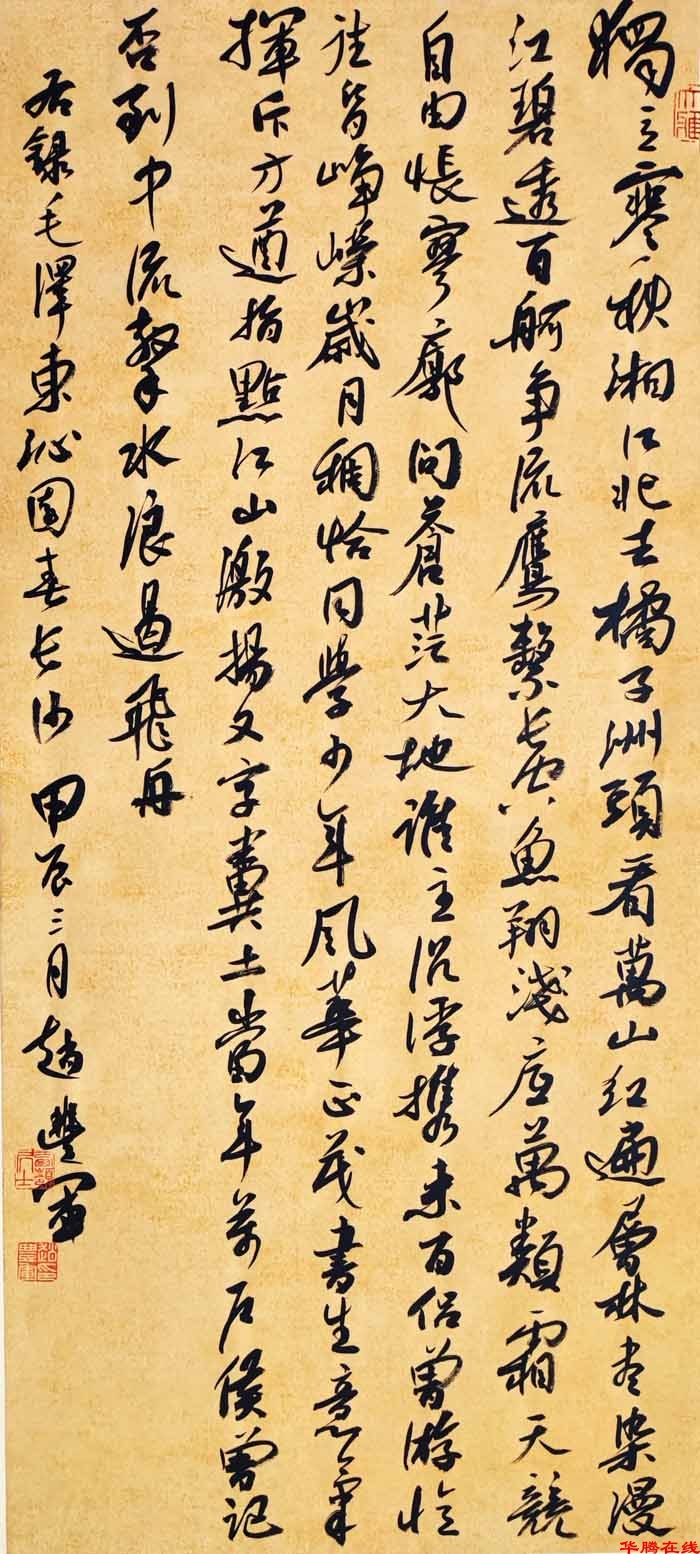 獨立寒秋湘江北去橘子洲頭看萬山红遍層林盡染漫
江碧透百舸争流鷹擊長空魚翔淺底萬類霜天競
自由悵寥廓問蒼茫大地誰主沉浮攜来百侣曾游憶
往昔崢嶸歲月稠恰同學少年風華正茂書生意氣
揮斥方遒指點江山激揚文字糞土當年萬户侯曾記
否到中流擊水浪遏飛舟
右錄毛澤東沁園春長沙 甲辰三月 趙豐軍
华腾在线